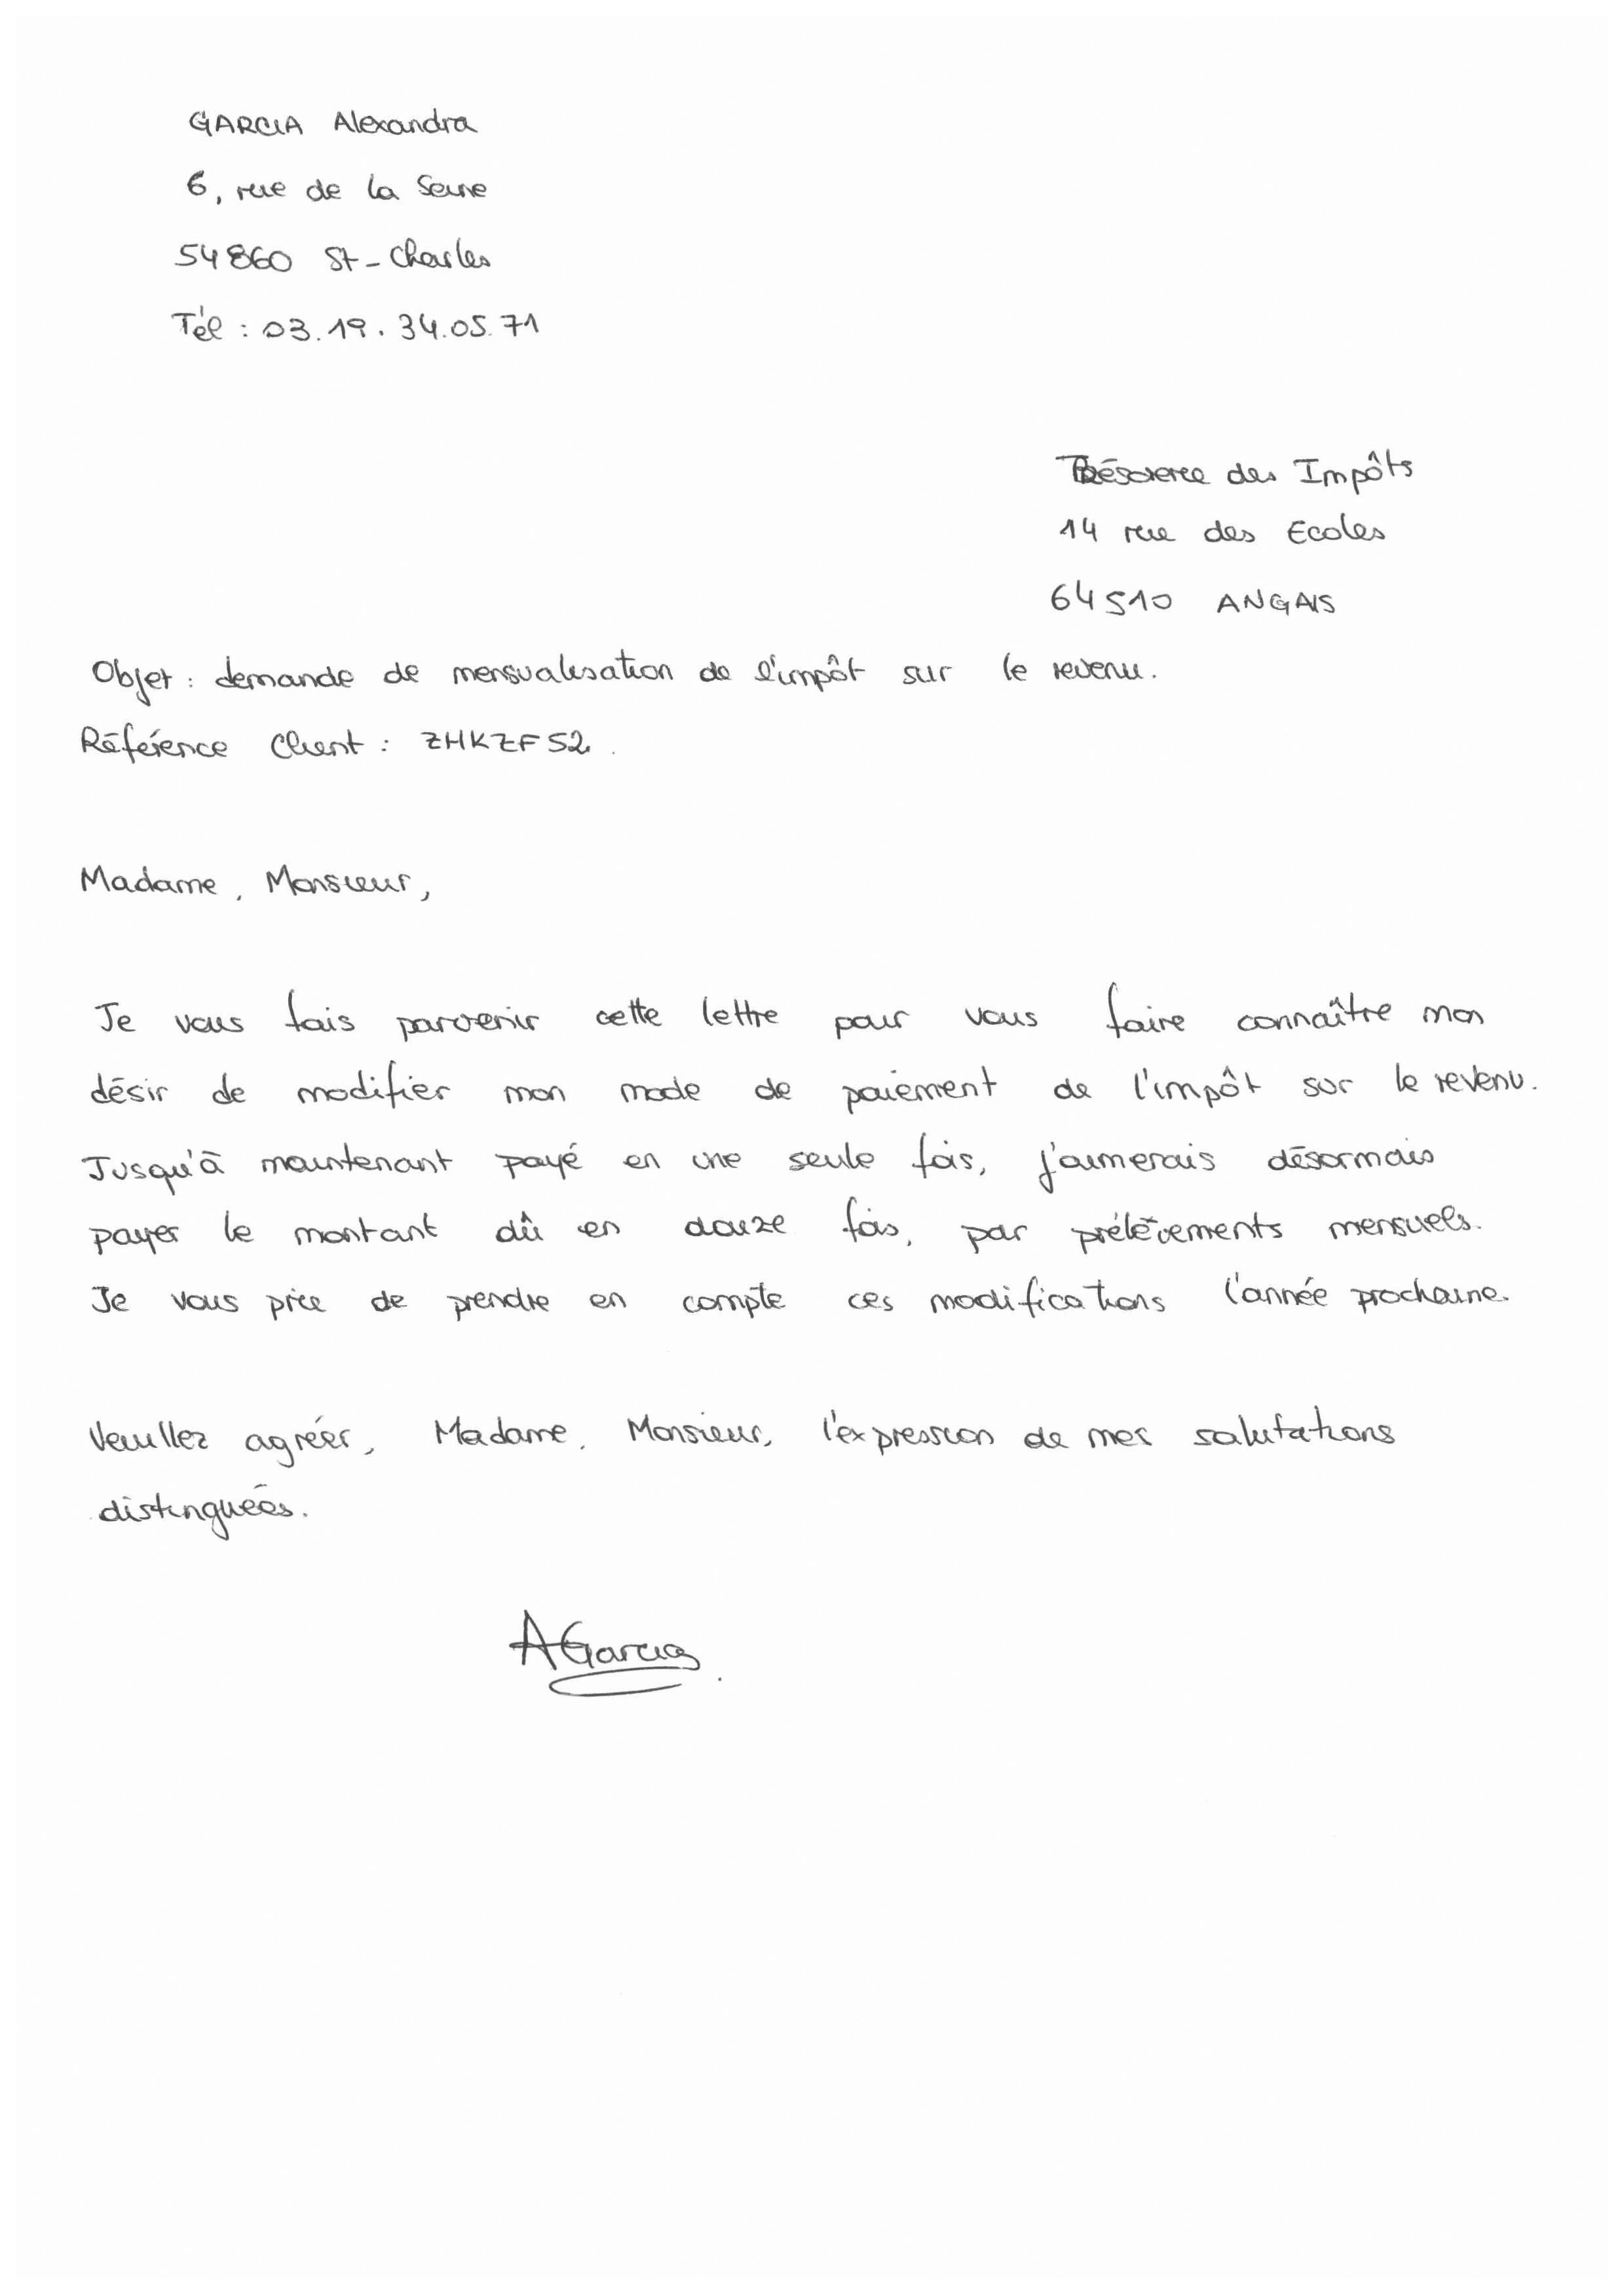 GARCIA Alexandra
6, rue de la Seine
54860 St-Charles
Tél : 03.19.34.05.71
Trésorerie des Impôts
14 rue des Ecoles
64510 ANGAIS
Objet : demande de mensualisation de l'impôt sur le revenu.
Référence Client : ZHKZF52.
Madame, Monsieur,
Je vous fais parvenir cette lettre pour vous faire connaître mon
désir de modifier mon mode de paiement de l'impôt sur le revenu.
Jusqu'à maintenant payé en une seule fois, j'aimerais désormais
payer le montant dû en douze fois, par prélèvements mensuels.
Je vous prie de prendre en compte ces modifications l'année prochaine.
Veuillez agréer, Madame, Monsieur, l'expression de mes salutations
distinguées.
AGarcia